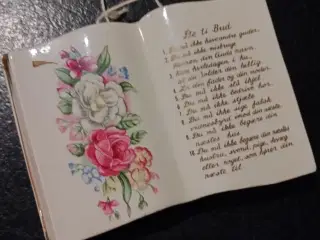 De ti Bud
1. Du må ikke have andre guder.
2. Du må ikke misbruge
Herrens din Guds navn.
3. Kom hviledagen i hu,
at du holder den hellig.
4. Ær din fader og din moder.
5. Du må ikke slå ihjel.
6. Du må ikke bedrive hor.
7. Du må ikke stjæle.
8. Du må ikke sige falsk
vidnesbyrd mod din næste.
9. Du må ikke begjere din
næstes hus.
10. Du må ikke begjere din næstes
hustru, svend, pige, kvæg
eller noget, som hører din
næste til.